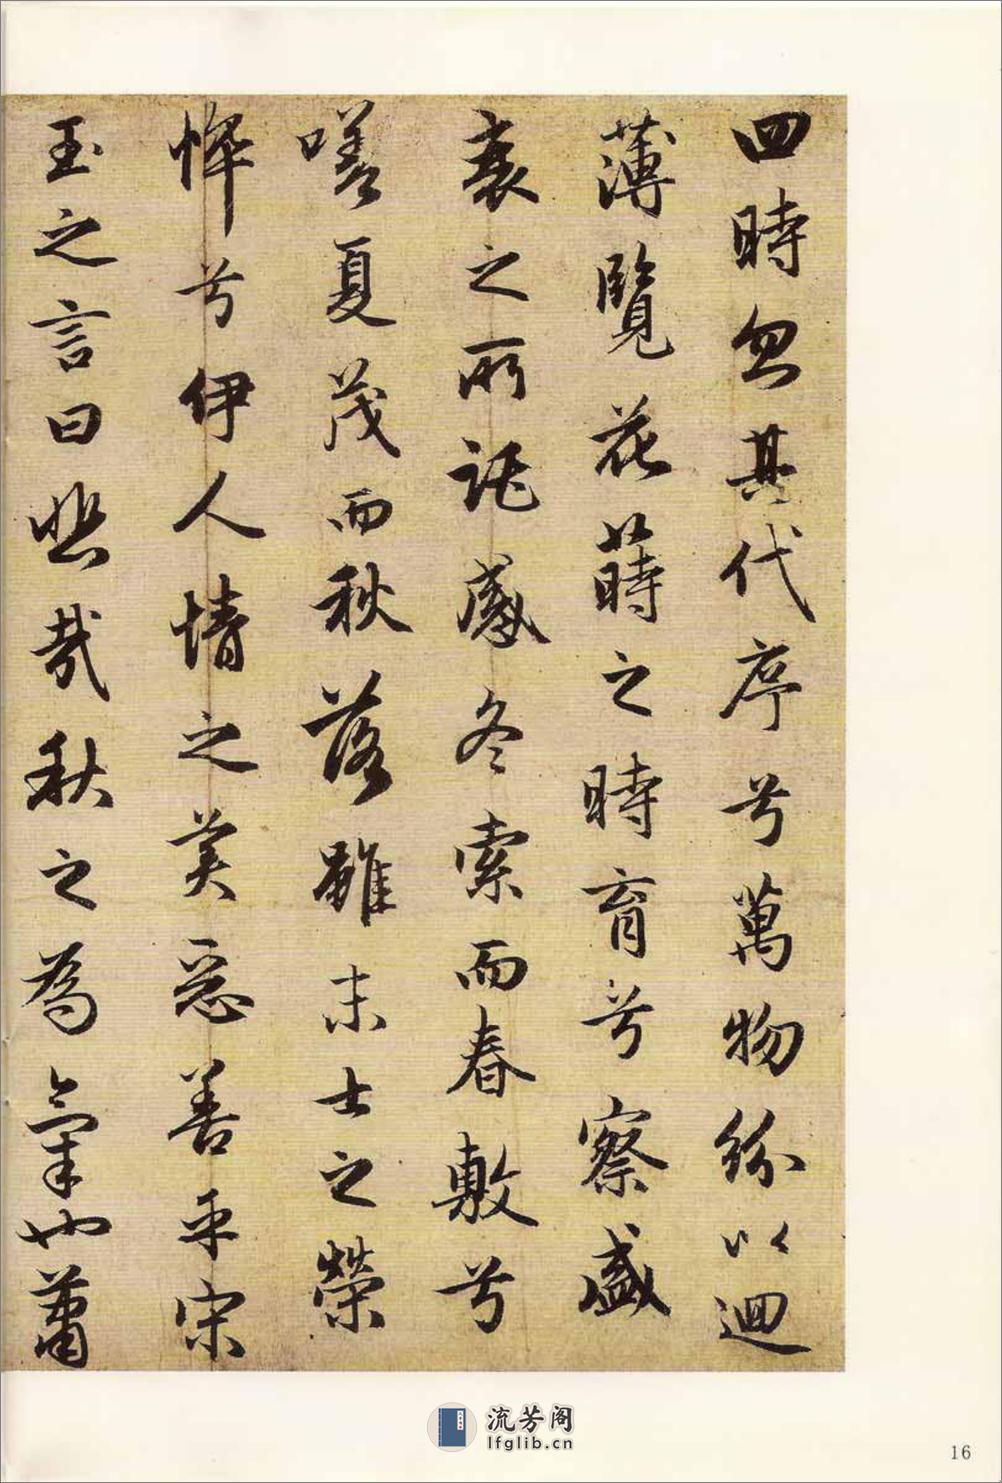 四時忽其代序兮萬物紛以迴
薄覽花蒔之時育兮察盛
衰之所託感冬索而春敷兮
嗟夏茂而秋落雖末士之榮
悴兮伊人情之美惡善乎宋
玉之言曰悲哉秋之為氣也蕭
流芳阁
lfglib.cn
16